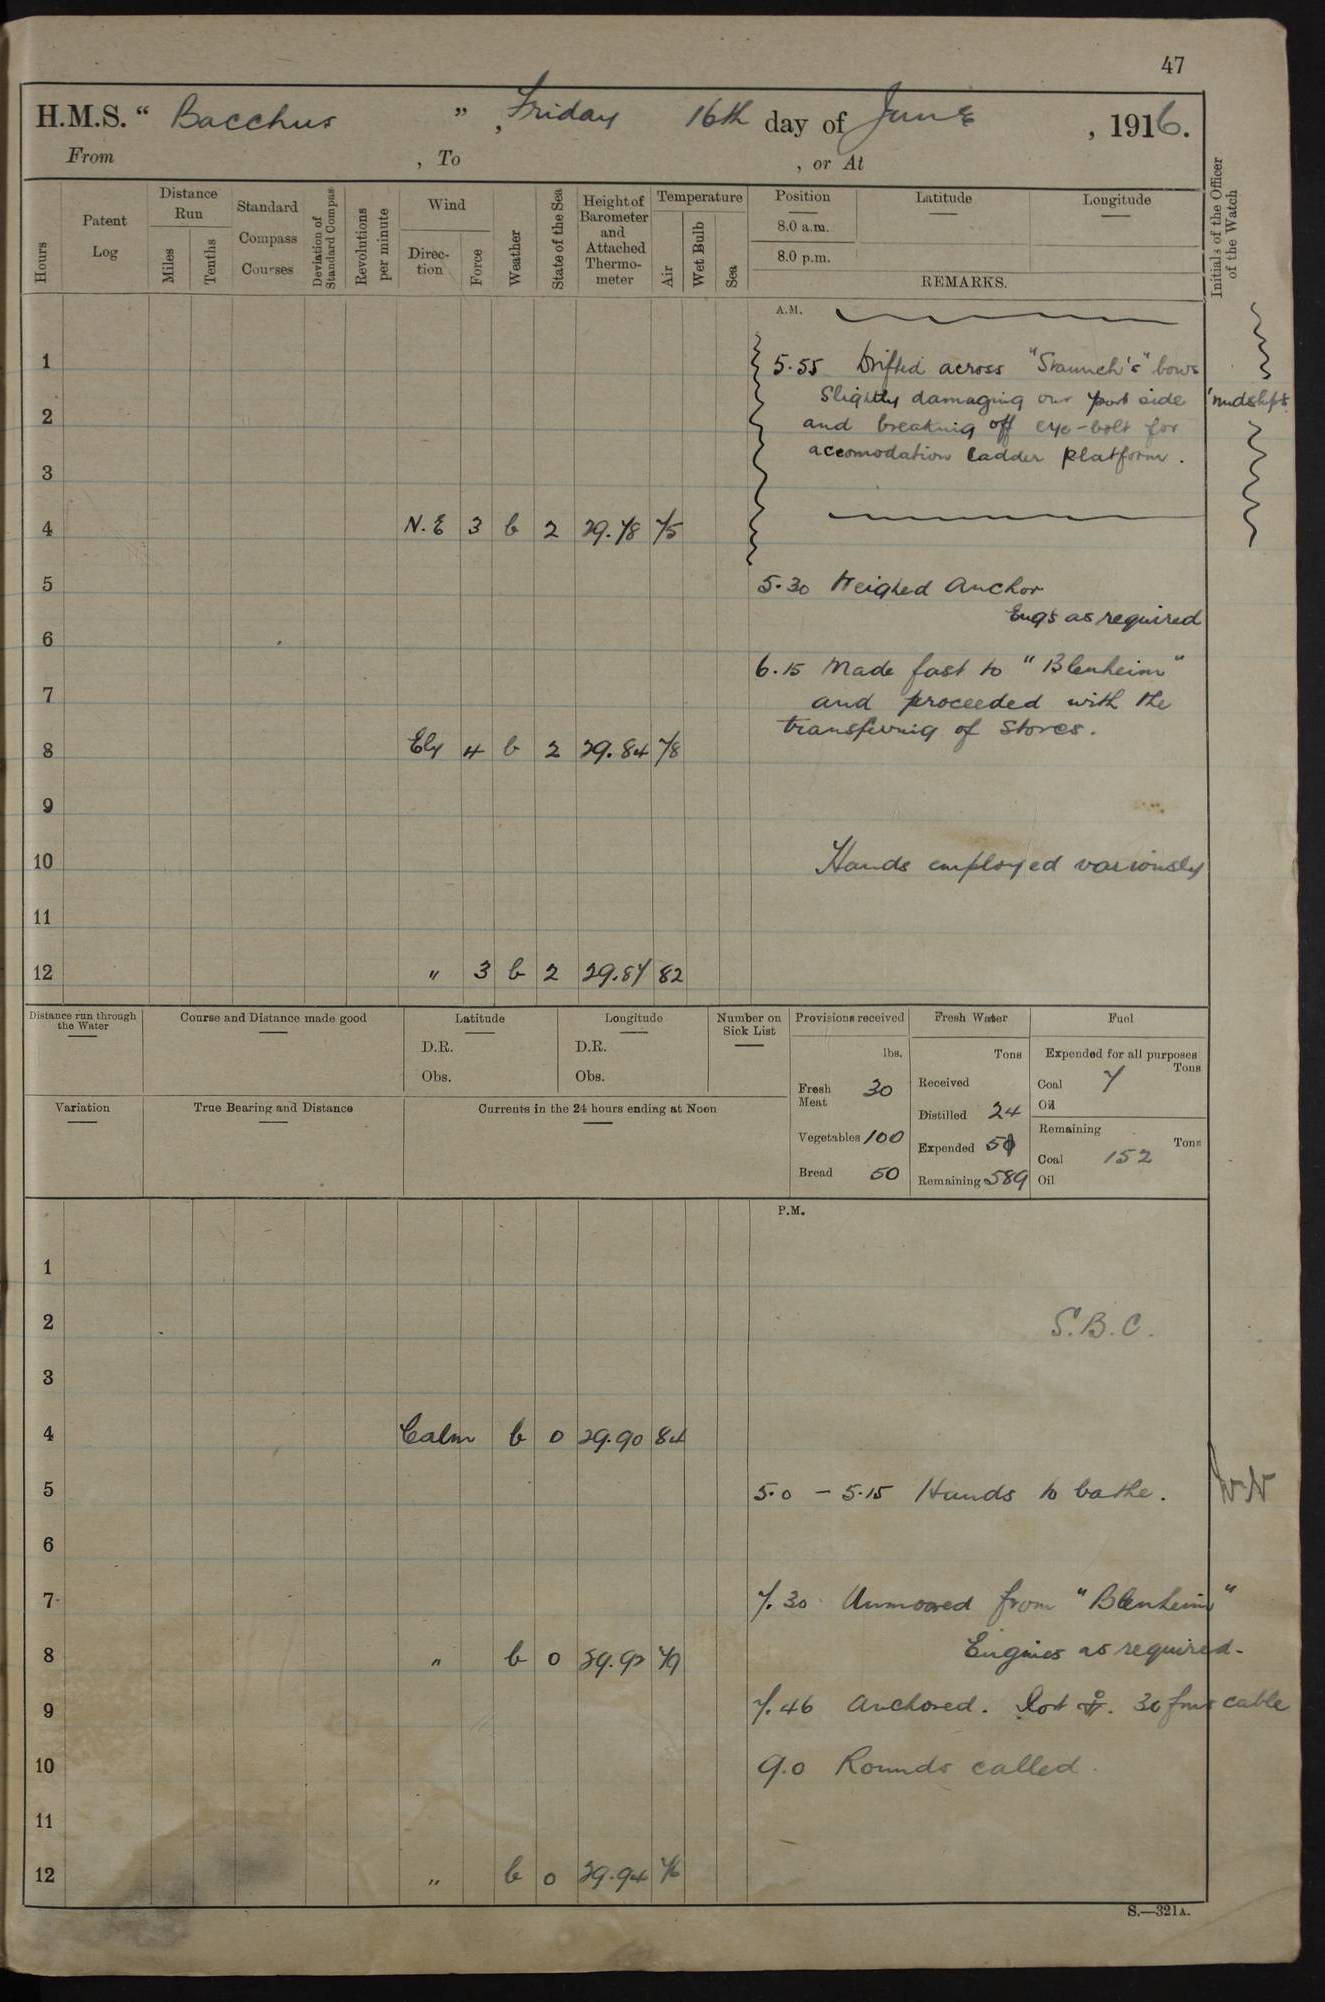 47
H.M.S. " Bacchus ", Friday 16th day of June, 1916.
From , To , or At
Hours
Patent Log
Distance Run
Miles
Tenths
Standard Compass Courses
Deviation of Standard Compas
Revolutions per minute
Wind
Direction
Force
Weather
State of the Sea
Height of Barometer and Attached Thermometer
Temperature
Air
Wet Bulb
Sea
Position
8.0 a.m.
8.0 p.m.
Latitude
Longitude
REMARKS.
Initials of the Officer of the Watch
A.M.
1
5.55 Drifted across "Staunch's" bows
Slightly damaging our port side 'midships
2
and breaking off eye-bolt for
accomodation ladder platform.
3
4 N.E 3 b 2 29.78 75
5
5.30 Weighed Anchor
Engs as required
6
6.15 Made fast to "Blenheim"
7
and proceeded with the
transfering of Stores.
8 Ely 4 b 2 29.84 78
9
10
Hands employed variously
11
12 " 3 b 2 29.87 82
Distance run through the Water
Course and Distance made good
Latitude
D.R.
Obs.
Longitude
D.R.
Obs.
Number on Sick List
Variation
True Bearing and Distance
Currents in the 24 hours ending at Noon
Provisions received
lbs.
Fresh Meat 30
Vegetables 100
Bread 50
Fresh Water
Tons
Received
Distilled 24
Expended
Remaining 589
Fuel
Expended for all purposes
Tons
Coal 7
Oil
Remaining
Tons
Coal 152
Oil
P.M.
1
2 S.B.C.
3
4 Calm b 0 29.90 84
5 5.0 - 5.15 Hands to bathe.
6
7 7.30 Unmoored from "Blenheim"
Engines as required.
8 " b 0 29.92 79
9 7.46 Anchored. Port ⚓. 30 fms cable
10 9.0 Rounds called.
11
12 " b 0 29.94 76
S.—321A.